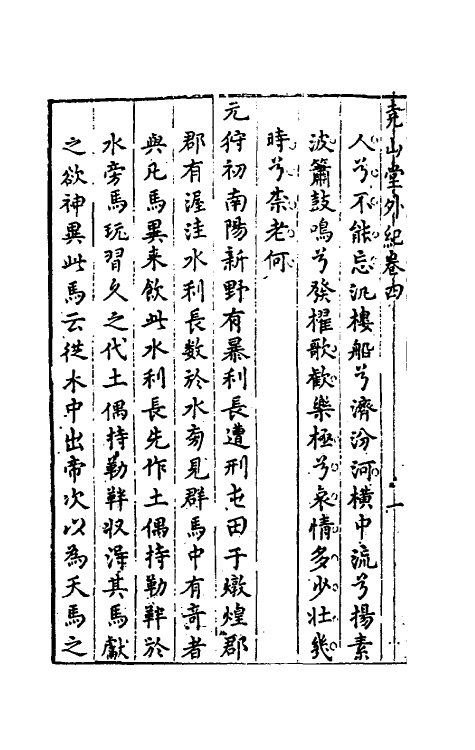 堯山堂外紀卷四 一
人兮不能忘汎樓船兮濟汾河橫中流兮揚素
波簫鼓鳴兮發櫂歌歡樂極兮哀情多少壯幾
時兮柰老何
元狩初南陽新野有暴利長遭刑屯田于燉煌郡
郡有渥洼水利長數於水旁見群馬中有竒者
與凡馬異来飲此水利長先作土偶持勒靽於
水旁馬玩習久之代土偶持勒靽収淂其馬獻
之欲神異此馬云從水中出帝次以為天馬之